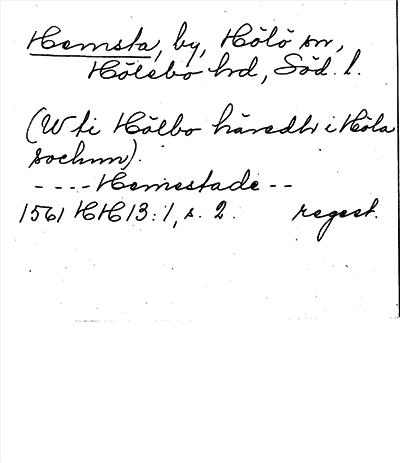 Hemsta, by, Hölö sn,
Hölebo hd, Söd. l.
(W ti Hölbo häredh i Höla
sochnn).
----Hemestade--
1561 HH 13:1, s. 2. regest.